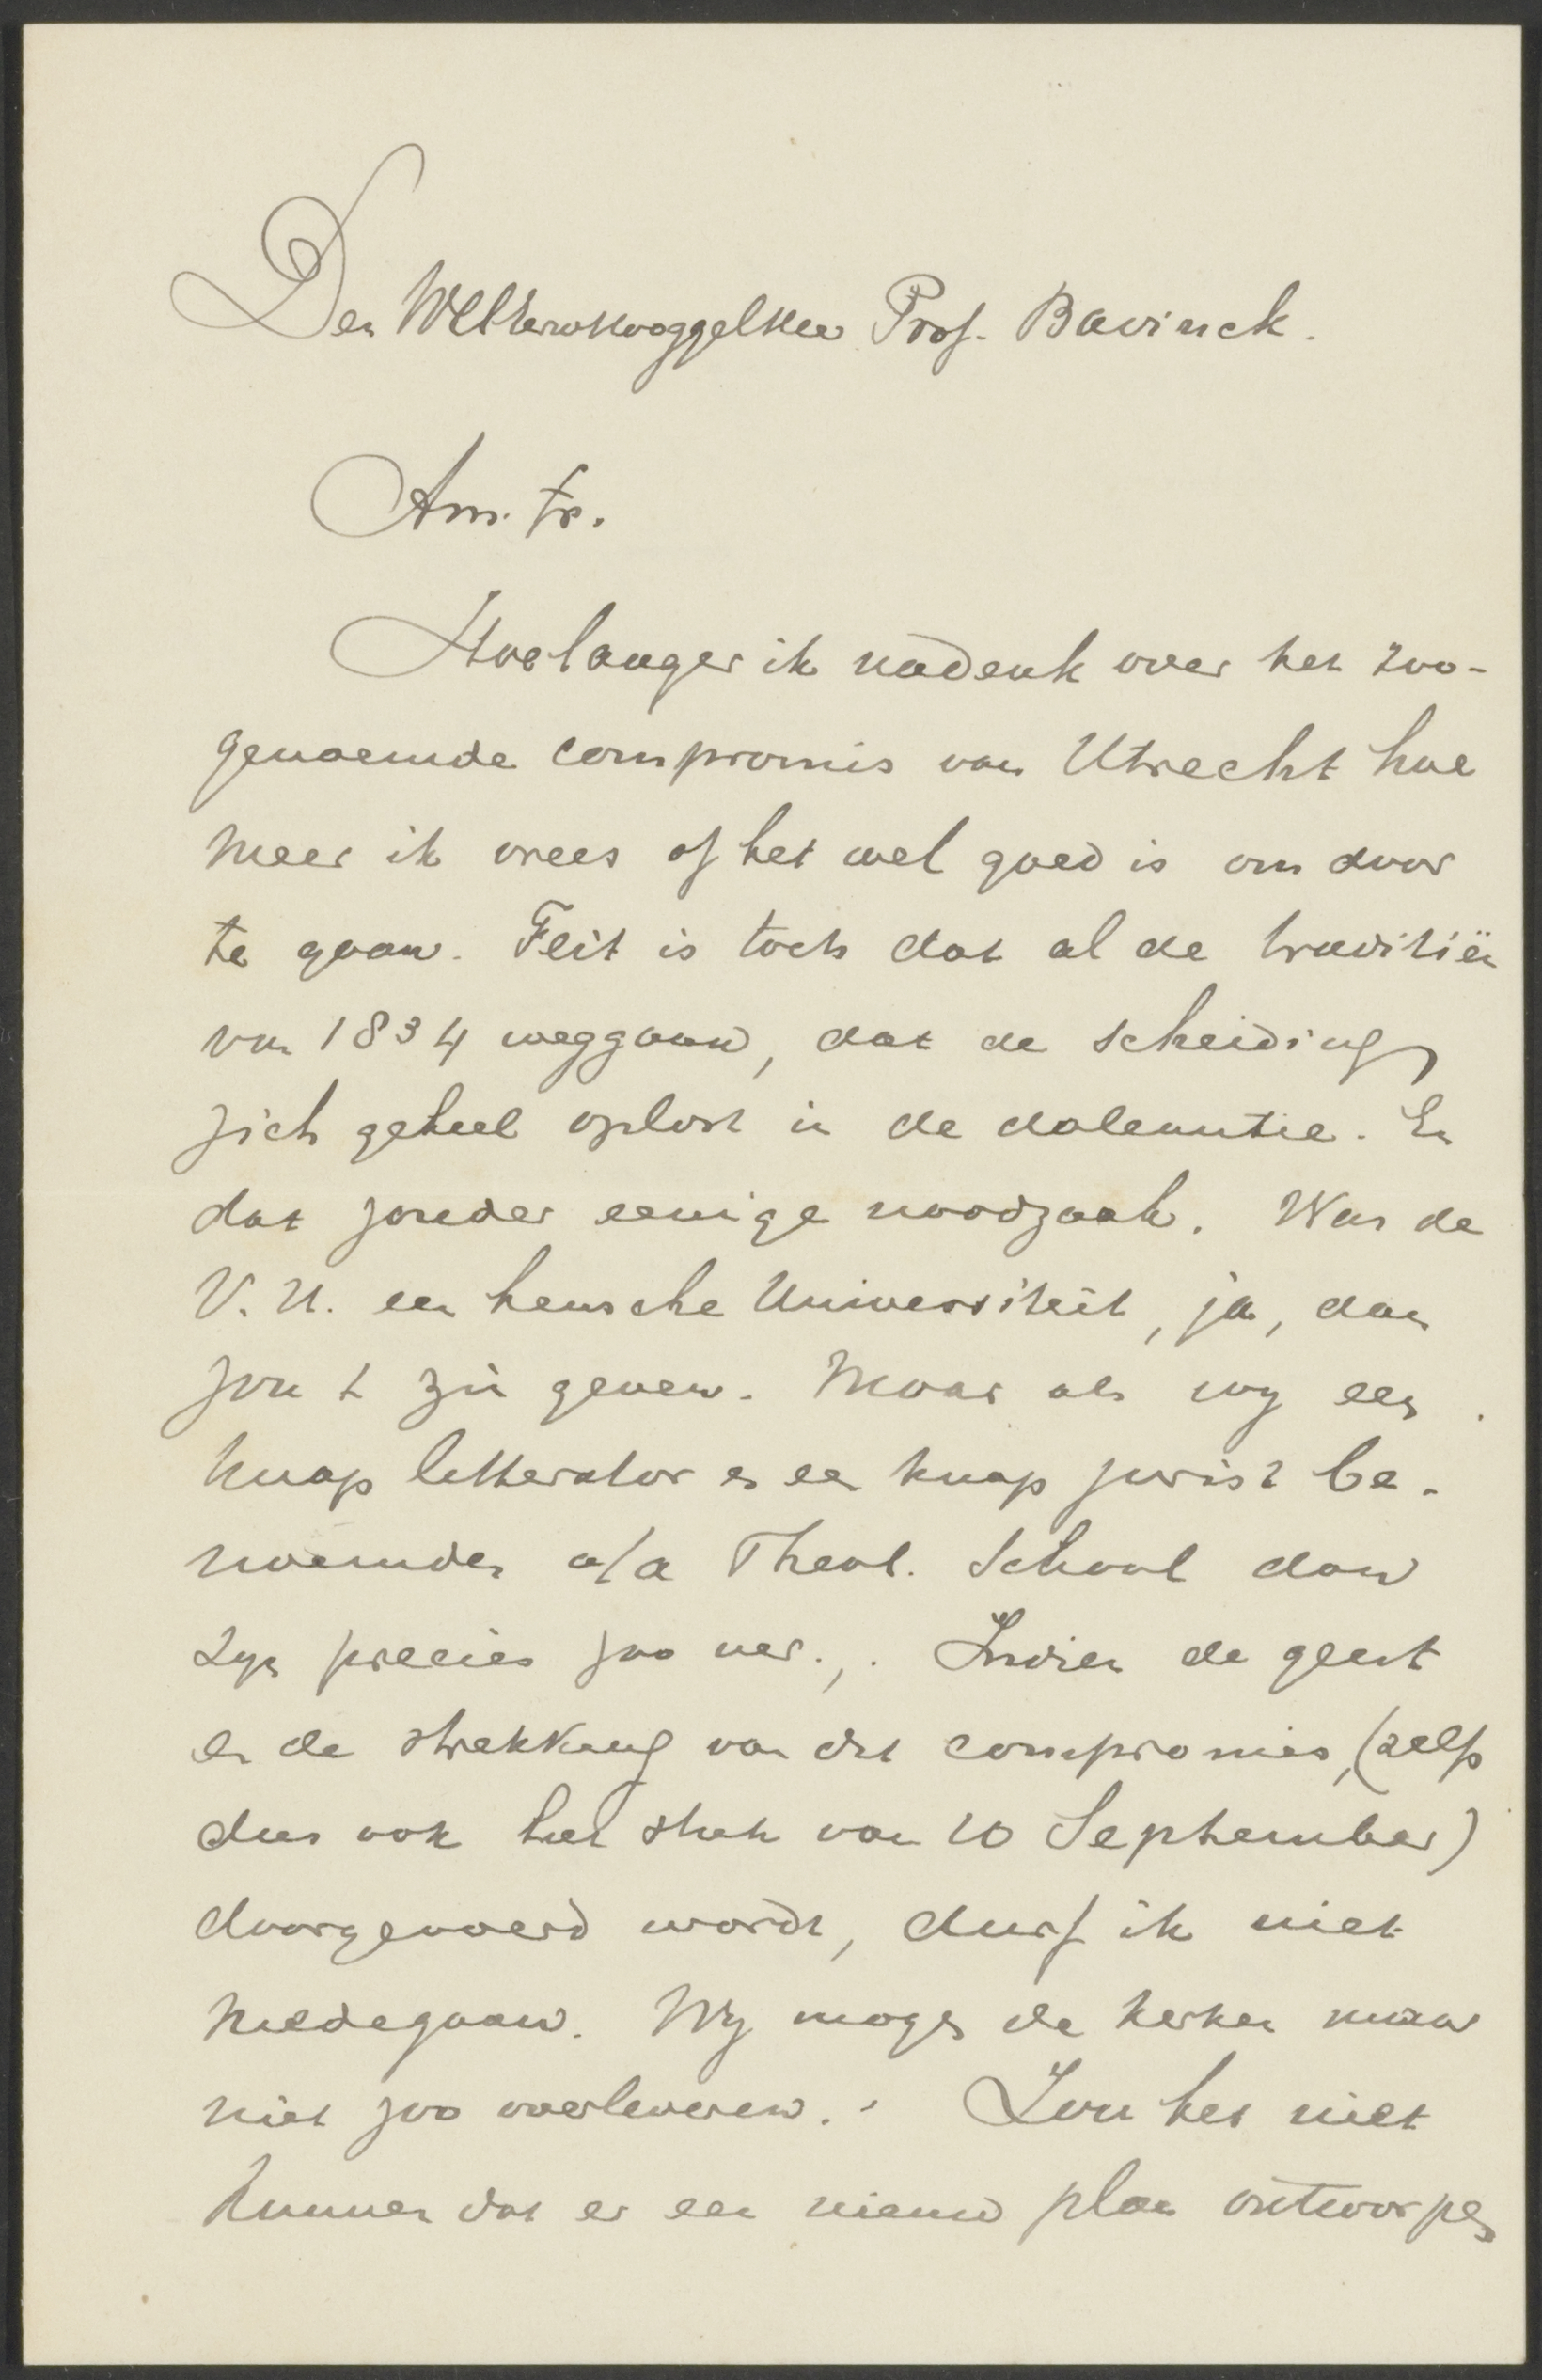 Den WelEerwHooggelHeer Prof. Bavinck.
Am. fr.
Hoe langer ik nadenk over het zoo-
genoemde compromis van Utrecht hoe
meer ik vrees of het wel goed is om door
te gaan. Feit is toch dat al de traditiën
van 1834 weggaan, dat de scheiding
zich geheel oplost in de doleantie. En
dat zonder eenige noodzaak. Was de
V. U. een heusche Universiteit, ja, dan
zou 't zijn geven. Maar als wij een
knap litterator en een knap jurist be-
noemden a/d Theol. School dan
zijn precies zoo ver. Indien de geest
en de strekking van dit compromis, (zelfs
dus ook het stuk van 10 September)
doorgevoerd wordt, durf ik niet
medegaan. Wij mogen de kerken maar
niet zoo overleveren. Zou het niet
kunnen dat er een nieuw plan ontworpen